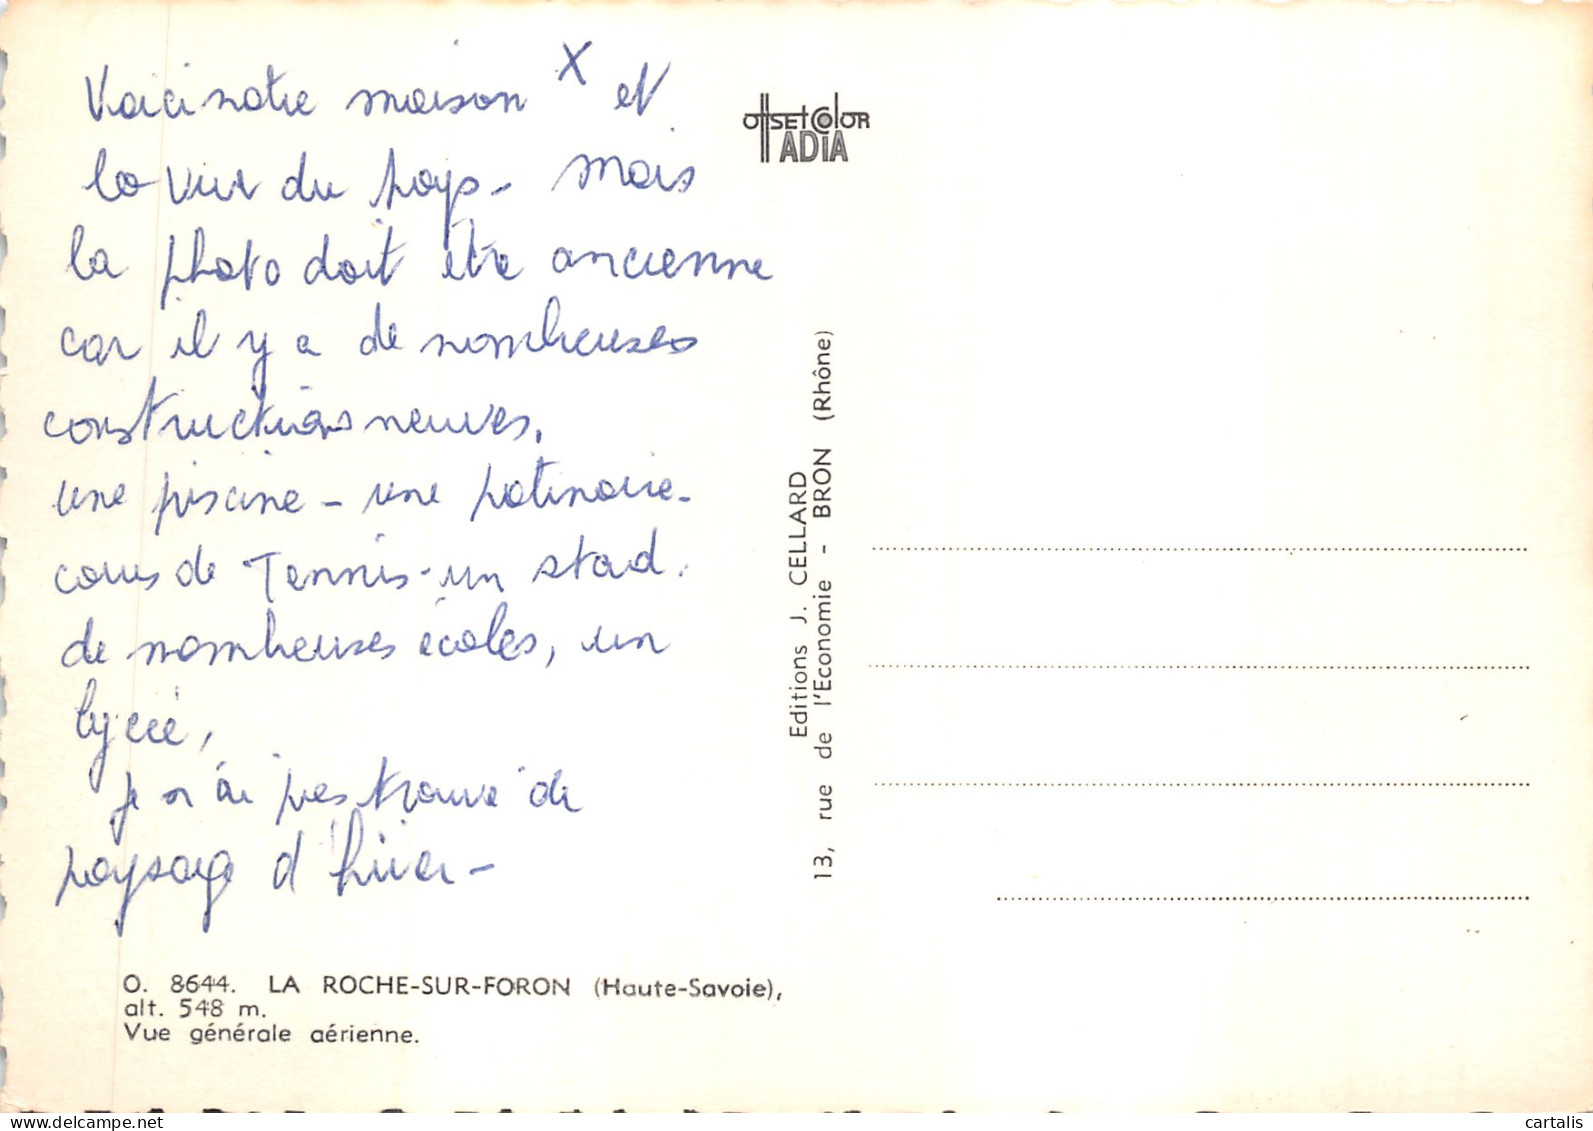 Voici notre maison X et
la vue du pays - Mais
la photo doit être ancienne
car il y a de nombreuses
constructions neuves.
une piscine - une patinoire -
cours de Tennis - un stad.
de nombreuses écoles, un
lycée,
je n'ai pas trouvé de
paysage d'hiver -
O. 8644. LA ROCHE-SUR-FORON (Haute-Savoie),
alt. 548 m.
Vue générale aérienne.
OffSEt COlOR
ADiA
Editions J. CELLARD
13, rue de l'Economie - BRON (Rhône)
cartalis